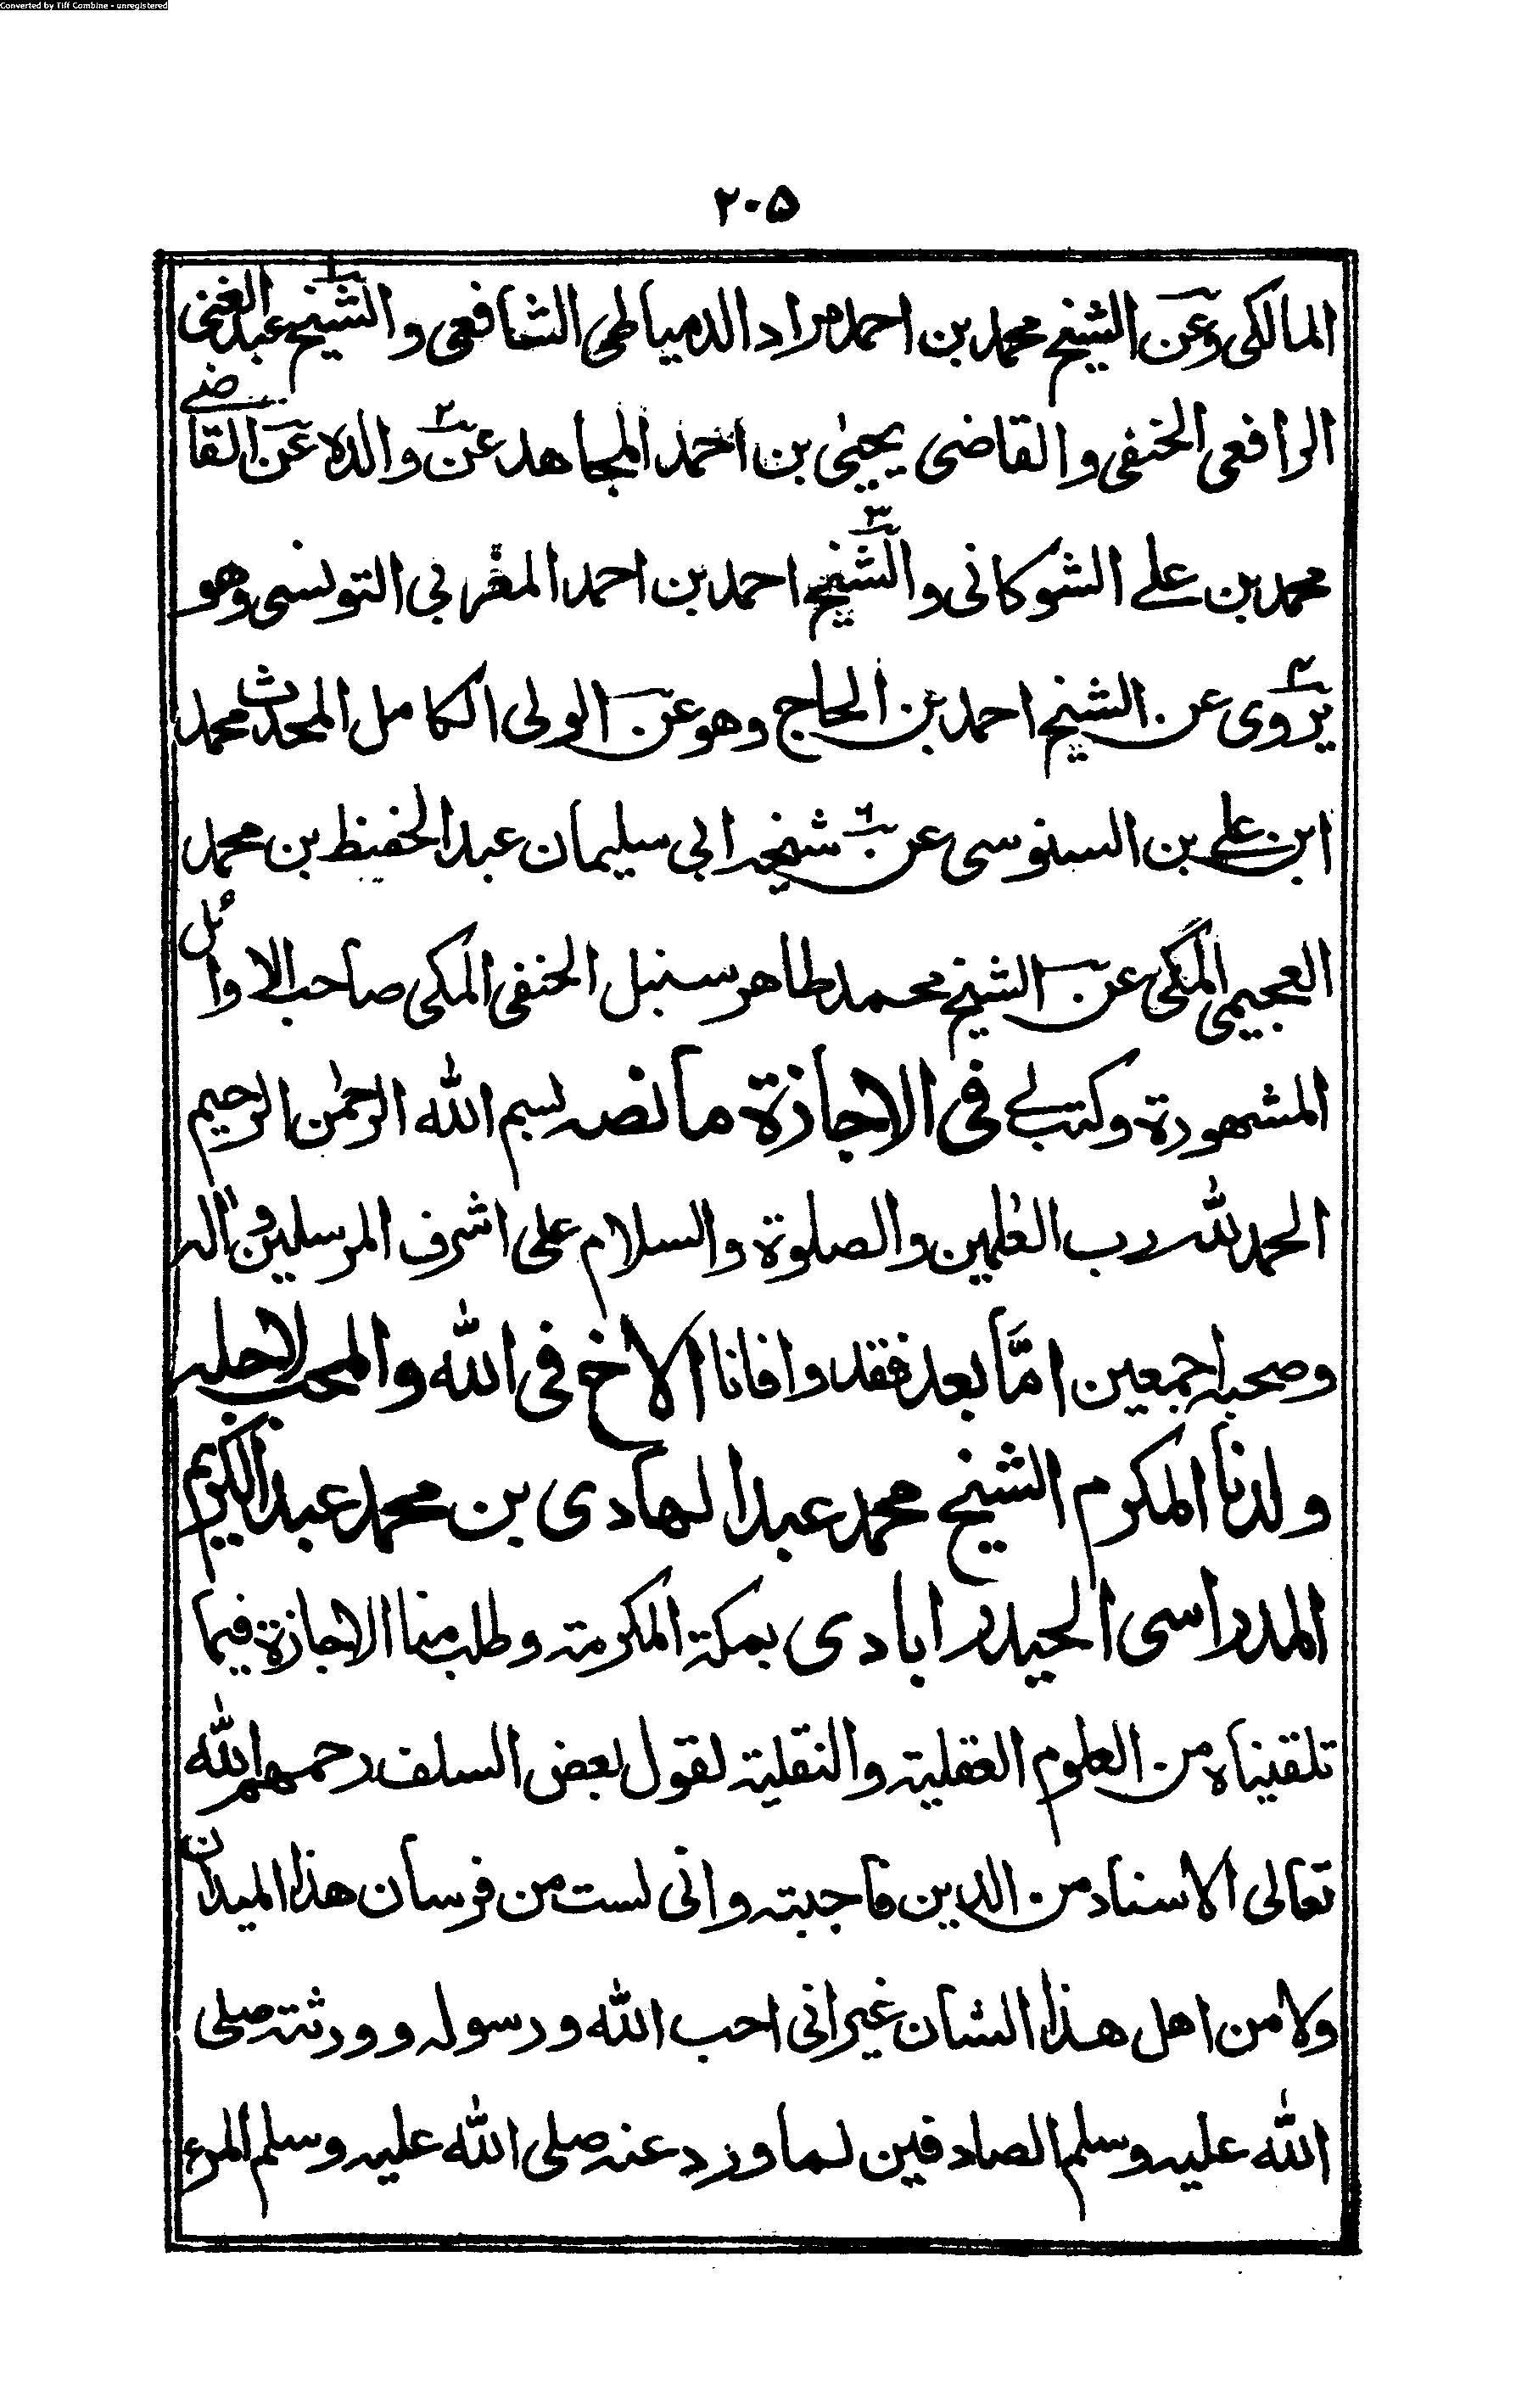 Converted by Tiff Combine - unregistered
۲۰۵
المالکی وعن الشیخ محمد بن احمد مراد الدمیاطی الشافعی والشیخ عبد الغنی
الرافعی الحنفی والقاضی یحیٰی بن احمد المجاهد عن والده عن القاضی
محمد بن علی الشوکانی والشیخ احمد بن احمد المغربی التونسی وهو
یروی عن الشیخ احمد بن الحاج وهو عن الولی الکامل المحدث محمد
ابن علی بن السنوسی عن شیخه ابی سلیمان عبد الحفیظ بن محمد
العجیمی المکی عن الشیخ محمد طاهر سنبل الحنفی المکی صاحب الاوائل
المشهورة وکتب لی فی الاجازة ما نصه بسم الله الرحمٰن الرحیم
الحمد لله رب العٰلمین والصلوة والسلام علی اشرف المرسلین واٰله
وصحبه اجمعین امَّا بعد فقد وافانا الاخ فی الله والمحب لاجله
ولدنا المکرم الشیخ محمد عبد الهادی بن محمد عبد الکریم
المدراسی الحیدر ابادی بمکة المکرمة وطلب منا الاجازة فیما
تلقیناه من العلوم العقلیة والنقلیة لقول بعض السلف رحمهم الله
تعالی الاسناد من الدین فاجبته وانی لست من فرسان هذا المیدان
ولا من اهل هذا الشان غیر انی احب الله ورسوله وورثته صلی
الله علیه وسلم الصادقین لما ورد عنه صلی الله علیه وسلم المرء